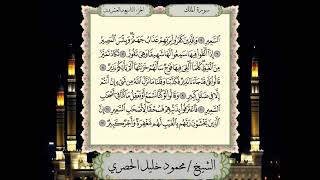 سورة الملك
الجزء التاسع والعشرون
السَّعِيرِ وَلِلَّذِينَ كَفَرُوا بِرَبِّهِمْ عَذَابُ جَهَنَّمَ وَبِئْسَ الْمَصِيرُ
إِذَا أُلْقُوا فِيهَا سَمِعُوا لَهَا شَهِيقًا وَهِيَ تَفُورُ تَكَادُ تَمَيَّزُ
مِنَ الْغَيْظِ كُلَّمَا أُلْقِيَ فِيهَا فَوْجٌ سَأَلَهُمْ خَزَنَتُهَا أَلَمْ يَأْتِكُمْ نَذِيرٌ
قَالُوا بَلَىٰ قَدْ جَاءَنَا نَذِيرٌ فَكَذَّبْنَا وَقُلْنَا مَا نَزَّلَ اللَّهُ مِنْ شَيْءٍ إِنْ أَنْتُمْ
إِلَّا فِي ضَلَالٍ كَبِيرٍ وَقَالُوا لَوْ كُنَّا نَسْمَعُ أَوْ نَعْقِلُ مَا كُنَّا فِي أَصْحَابِ
السَّعِيرِ فَاعْتَرَفُوا بِذَنْبِهِمْ فَسُحْقًا لِأَصْحَابِ السَّعِيرِ إِنَّ
الَّذِينَ يَخْشَوْنَ رَبَّهُمْ بِالْغَيْبِ لَهُمْ مَغْفِرَةٌ وَأَجْرٌ كَبِيرٌ
الشيخ / محمود خليل الحصري